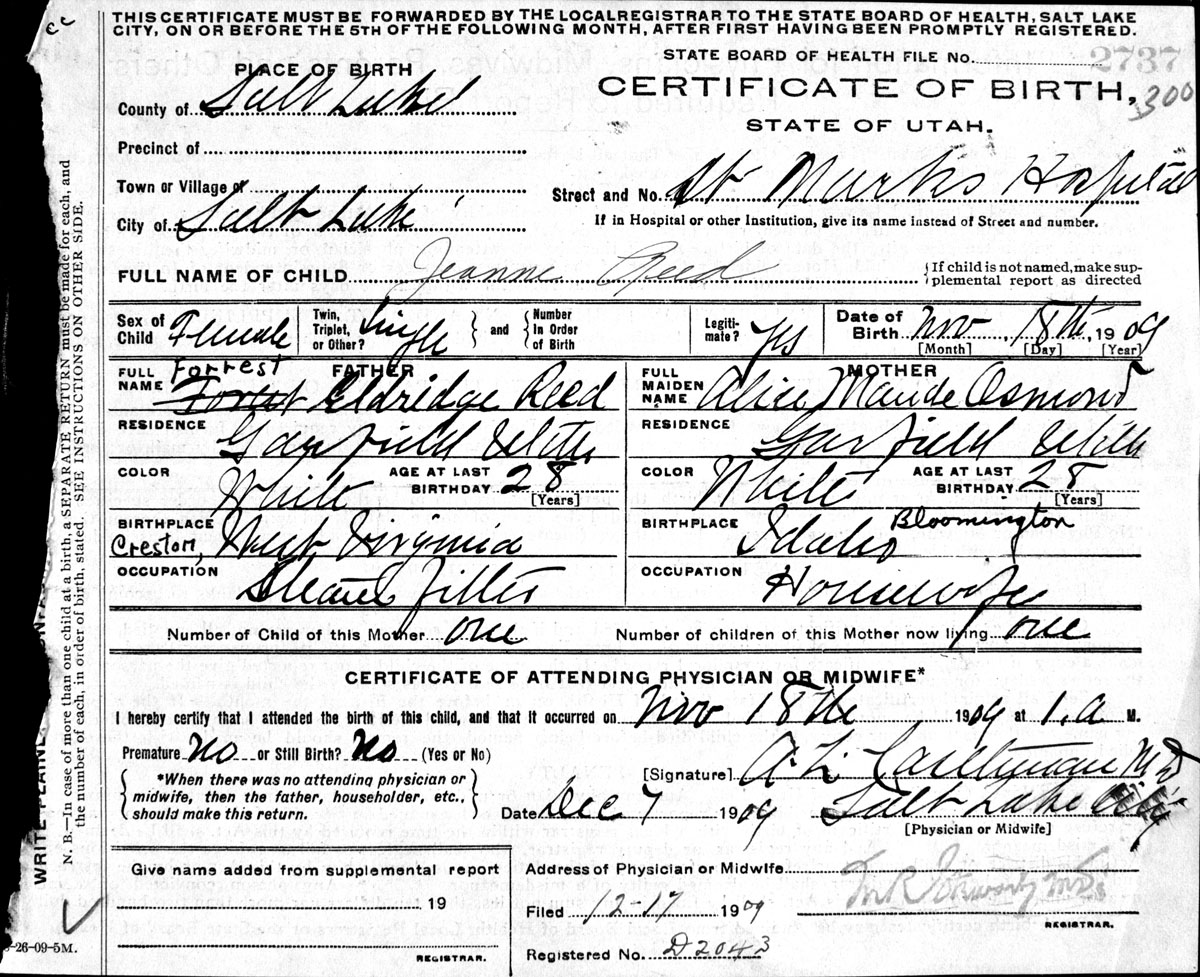 THIS CERTIFICATE MUST BE FORWARDED BY THE LOCAL REGISTRAR TO THE STATE BOARD OF HEALTH, SALT LAKE
CITY, ON OR BEFORE THE 5TH OF THE FOLLOWING MONTH, AFTER FIRST HAVING BEEN PROMPTLY REGISTERED.
STATE BOARD OF HEALTH FILE No. 2737
PLACE OF BIRTH
CERTIFICATE OF BIRTH, 300
County of Salt Lake
STATE OF UTAH.
Precinct of
Town or Village of
Street and No. St Marks Hospital
City of Salt Lake
If in Hospital or other Institution, give its name instead of Street and number.
FULL NAME OF CHILD Jeanne Reed
If child is not named, make sup-
plemental report as directed
Sex of Child Female Twin, Triplet, or Other? Single and Number In Order of Birth Legiti-mate? Yes Date of Birth Nov 18th, 1909
[Month] [Day] [Year]
FULL NAME FATHER Forrest Eldridge Reed
FULL MAIDEN NAME MOTHER Alice Maude Osmond
RESIDENCE Garfield Utah
RESIDENCE Garfield Utah
COLOR White AGE AT LAST BIRTHDAY 28 [Years]
COLOR White AGE AT LAST BIRTHDAY 28 [Years]
BIRTHPLACE Creston, West Virginia
BIRTHPLACE Idaho Bloomington
OCCUPATION Steam fitter
OCCUPATION Housewife
Number of Child of this Mother one Number of children of this Mother now living one
CERTIFICATE OF ATTENDING PHYSICIAN OR MIDWIFE*
I hereby certify that I attended the birth of this child, and that it occurred on Nov 18th, 1909 at 1.a M.
Premature No or Still Birth? No (Yes or No)
*When there was no attending physician or
midwife, then the father, householder, etc.,
should make this return.
[Signature] A L M D
Date Dec 7 1909 Salt Lake City
[Physician or Midwife]
Give name added from supplemental report
19
REGISTRAR.
Address of Physician or Midwife
Filed 12-17 1909
REGISTRAR.
Registered No. D2043
-26-09-5M.
N. B.—In case of more than one child at a birth, a SEPARATE RETURN must be made for each, and
the number of each, in order of birth, stated. SEE INSTRUCTIONS ON OTHER SIDE.
WRITE PLAINL